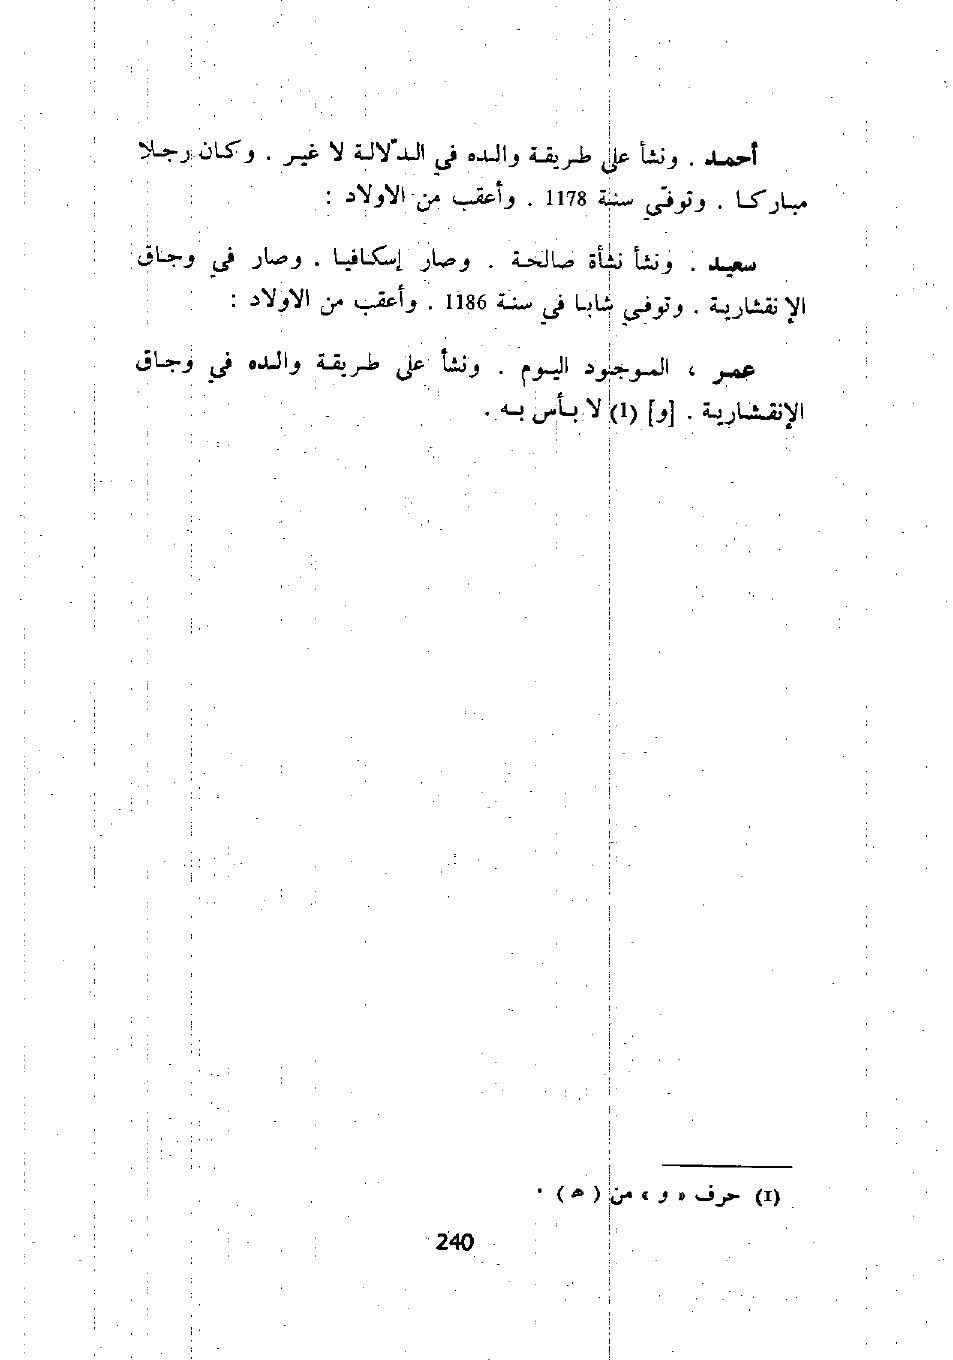 أحمد . ونشأ على طريقة والده في الدّلالة لا غير . وكان رجلا
مباركا . وتوفّي سنة 1178 . وأعقب من الاولاد :
سعيد . ونشأ نشأة صالحة . وصار إسكافيا . وصار في وجاق
الإنقشارية . وتوفي شابا في سنة 1186 . وأعقب من الاولاد :
عمر ، الموجود اليوم . ونشأ على طريقة والده في وجاق
الإنقشارية . [و] (1) لا بأس به .
(1) حرف « و » من ( ھ ) .
240